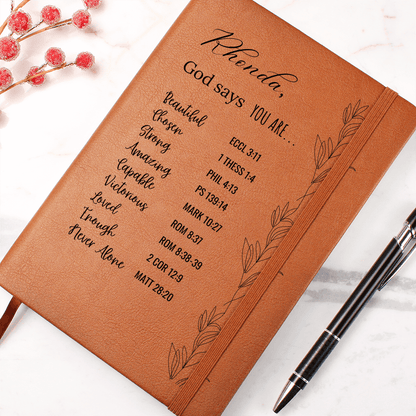 Rhenda,
God says YOU ARE...
Beautiful ECCL 3:11
Chosen 1 THESS 1:4
Strong PHIL 4:13
Amazing PS 139:14
Capable MARK 10:27
Victorious ROM 8:37
Loved ROM 8:38-39
Enough 2 COR 12:9
Never Alone MATT 28:20